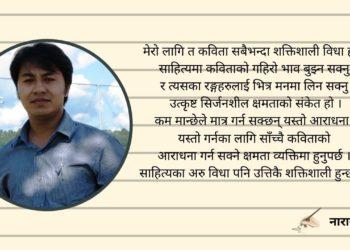 मेरो लागि त कविता सबैभन्दा शक्तिशाली विधा ह
साहित्यमा कविताको गहिरो भाव बुझ्न सक्नु
र त्यसका रङ्गहरुलाई भित्र मनमा लिन सक्नु
उत्कृष्ट सिर्जनशील क्षमताको संकेत हो ।
कम मान्छेले मात्र गर्न सक्छन् यस्तो आराधना
यस्तो गर्नका लागि साँच्चै कविताको
आराधना गर्न सक्ने क्षमता व्यक्तिमा हुनुपर्छ ।
साहित्यका अरु विधा पनि उत्तिकै शक्तिशाली हुन्छ
नारा